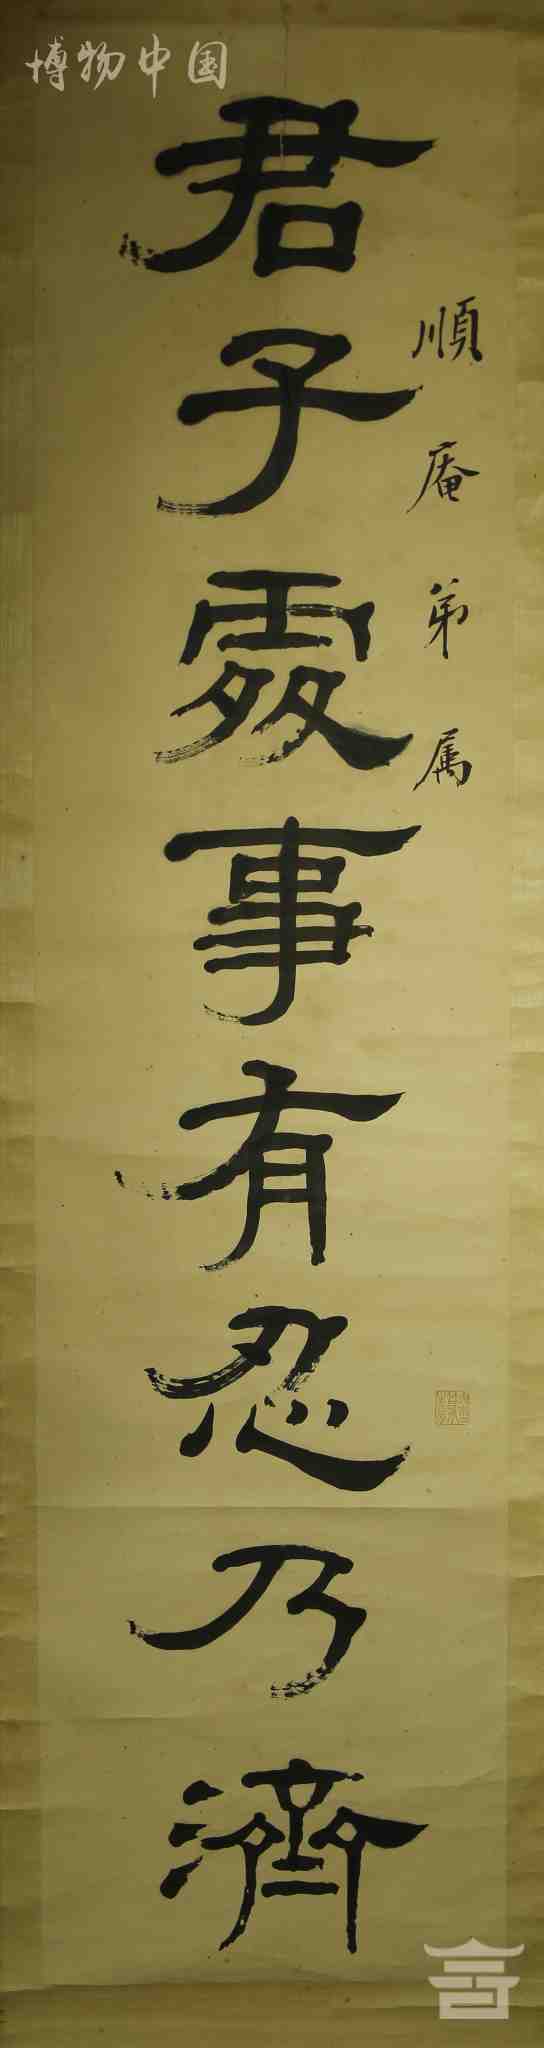 博物中国
順庵弟属
君子處事有忍乃濟